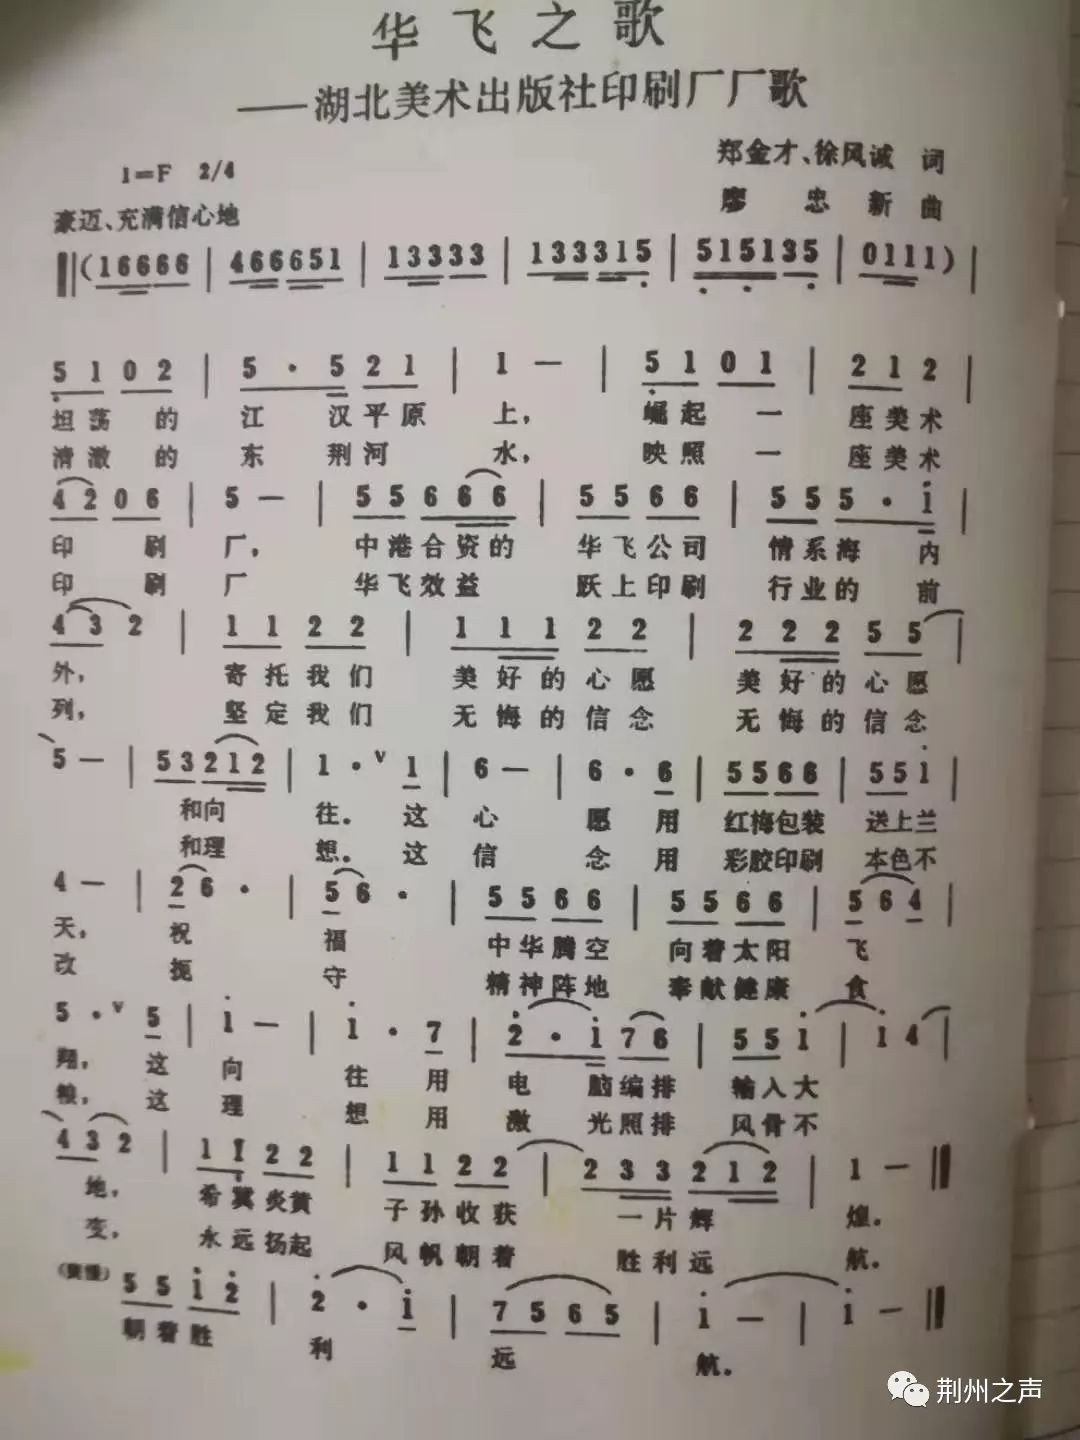 华飞之歌
——湖北美术出版社印刷厂厂歌
1=F 2/4
郑金才、徐风诚 词
豪迈、充满信心地
廖忠新 曲
(16666 | 466651 | 133333 | 133315 | 515135 | 0111) |
51 02 | 5·5 21 | 1 — | 51 01 | 212 |
坦荡的江汉平原上,崛起一座美术
清澈的东荆河水,映照一座美术
42 06 | 5 — | 55 666 | 55 66 | 55 5·1 |
印刷厂,中港合资的华飞公司情系海内
印刷厂华飞效益跃上印刷行业的前
43 2 | 11 22 | 111 22 | 222 55 |
外,寄托我们美好的心愿美好的心愿
列,坚定我们无悔的信念无悔的信念
5 — | 53 212 | 1·V 1 | 6 — | 6·6 | 55 66 | 55 1 |
和向往。这心愿用红梅包装送上兰
和理想。这信念用彩胶印刷本色不
4 — | 26· | 56· | 55 66 | 55 66 | 564 |
天,祝福中华腾空向着太阳飞
改扼守精神阵地奉献健康食
5·V 5 | 1 — | 1·7 | 2·1 76 | 55 1 | 14 |
翔,这向往用电脑编排输入大
粮,这理想用激光照排风骨不
43 2 | 11 22 | 11 22 | 233 212 | 1 — ‖
地,希冀炎黄子孙收获一片辉煌。
变,永远扬起风帆朝着胜利远航。
55 12 | 2·1 | 75 65 | 1 — | 1 — ‖
朝着胜利远航。
荆州之声